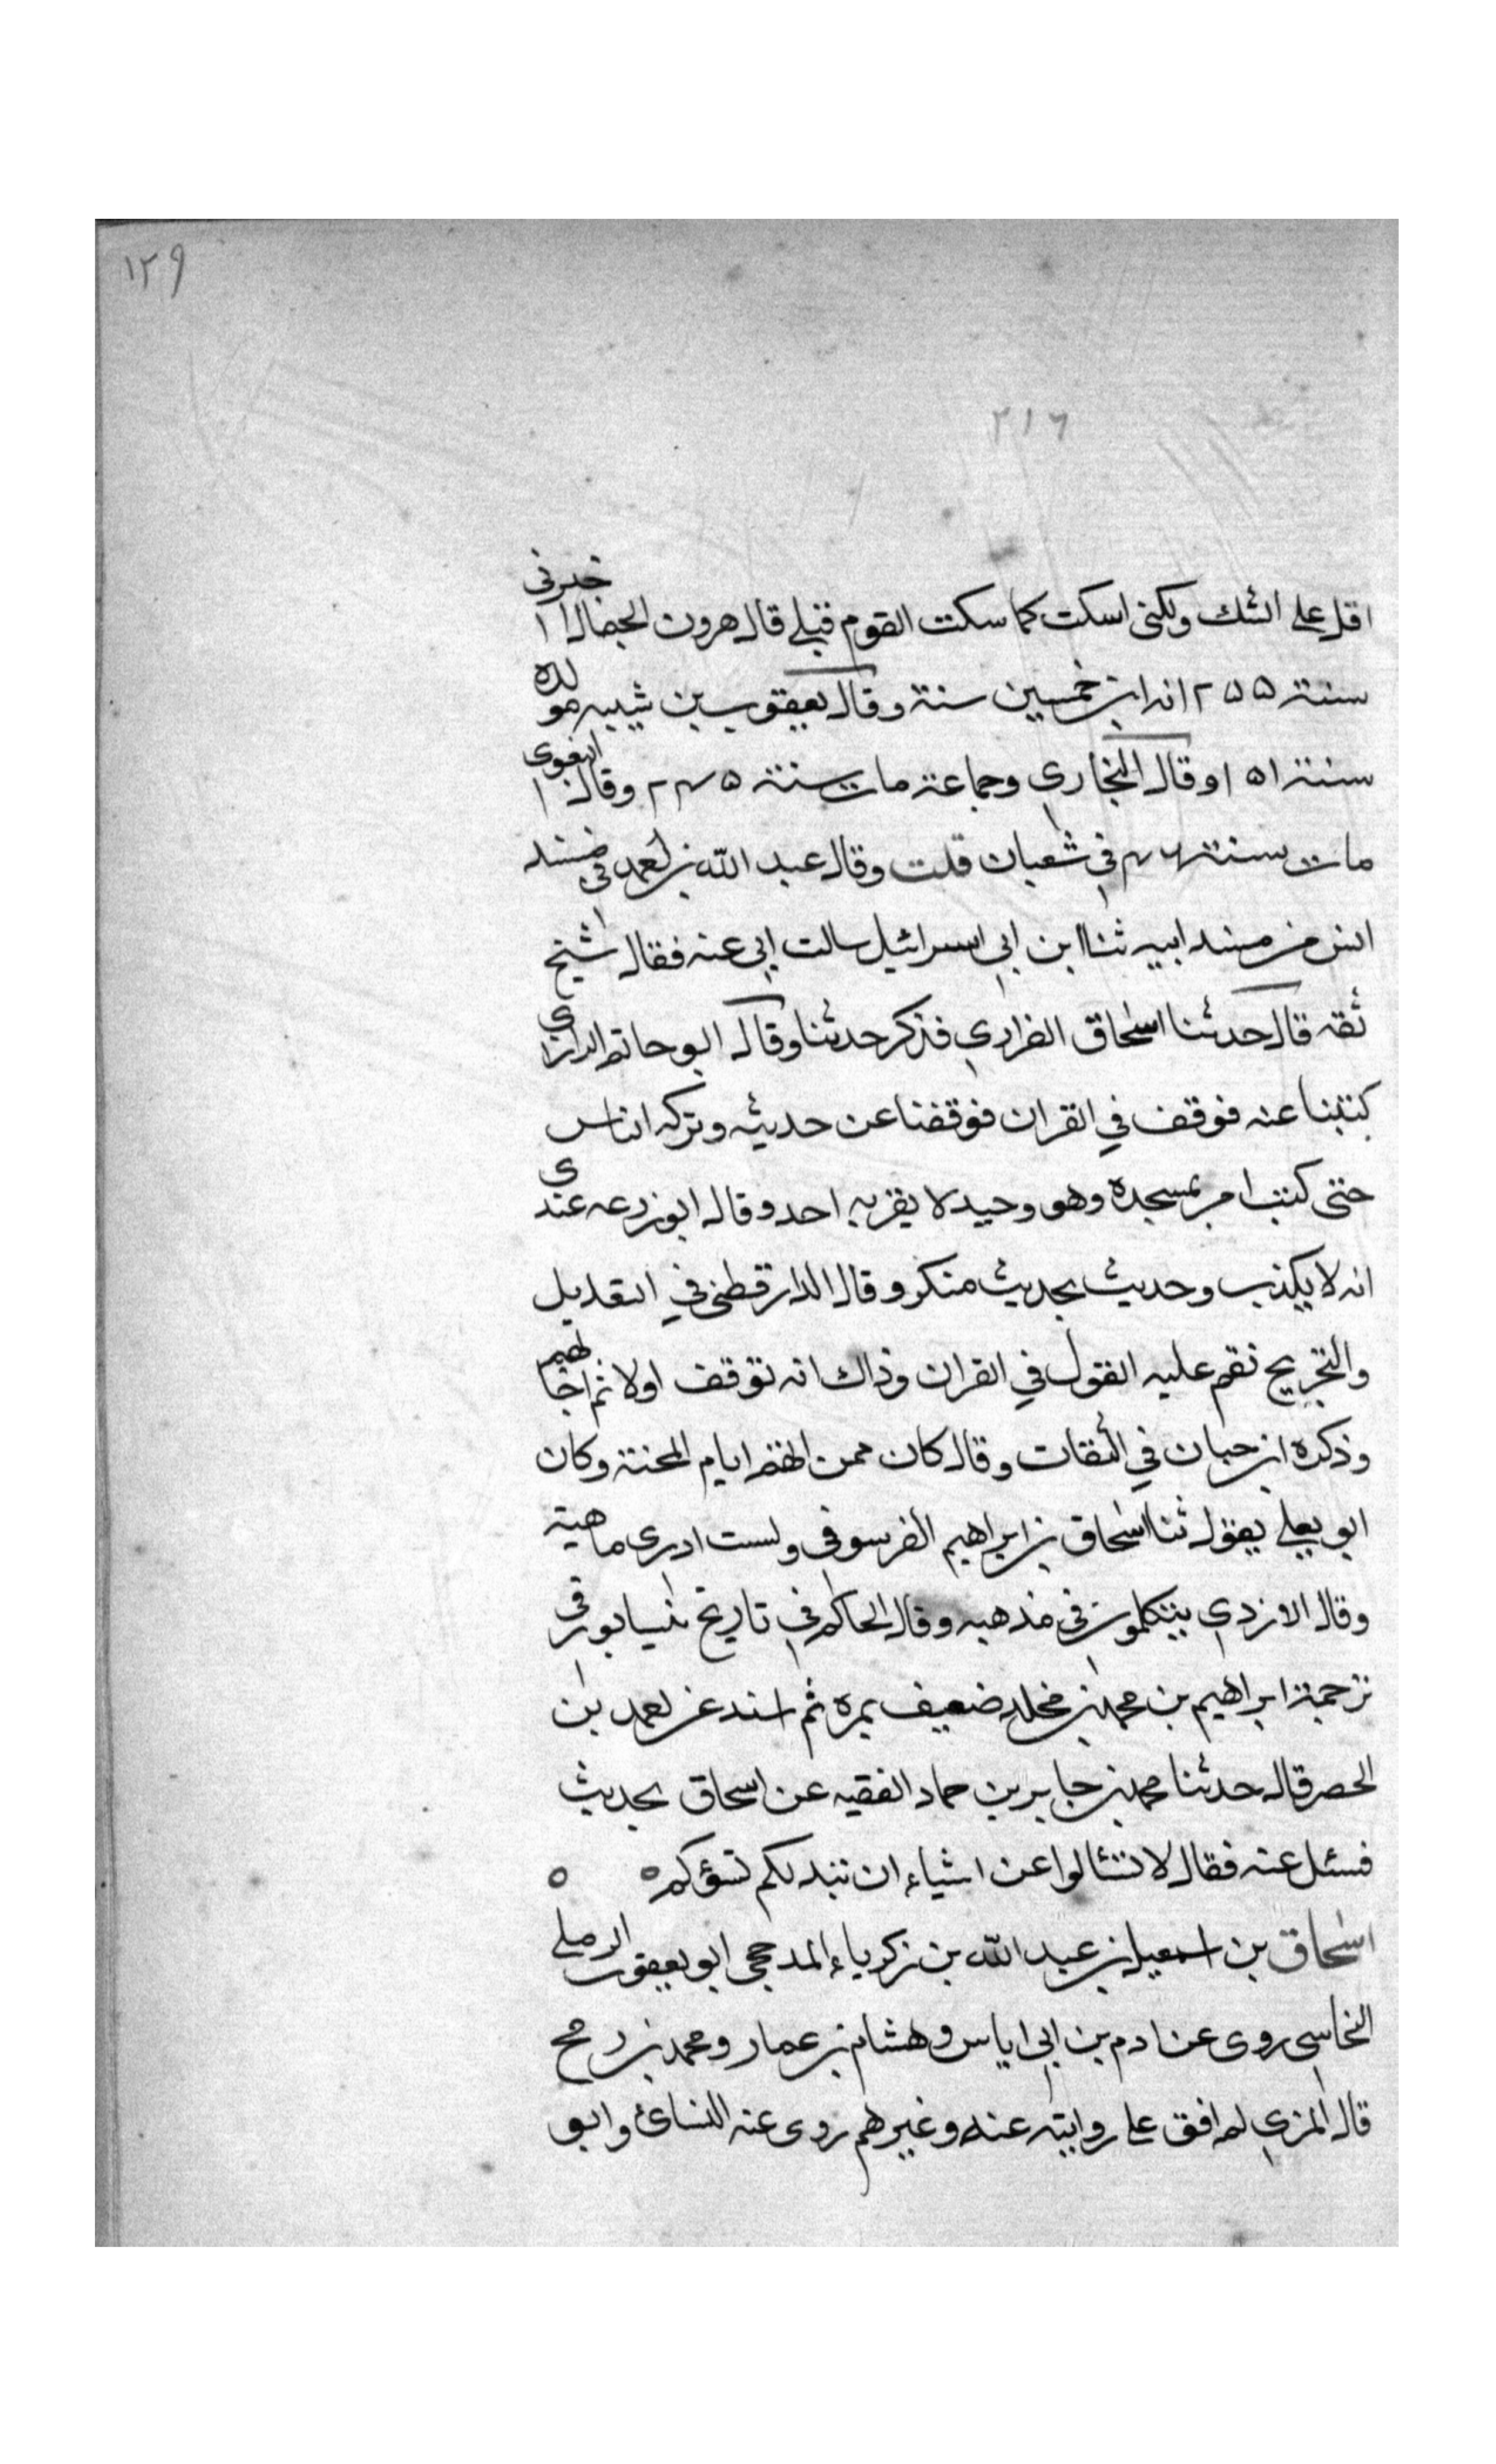 ١٢٩
٢١٦
اقل على الشك ولكنى اسكت كما سكت القوم قبلى قال هرون الحمال اخبرنى
سنة ٢٥٥ انه ابن خمسين سنة وقال يعقوب بن شيبه مولده
سنة ١٥١ وقال البخاري وجماعة مات سنة ٢٤٥ وقال البغوى
مات سنة ٤٦ في شعبان قلت وقال عبد الله بن احمد في مسند
انس من مسند ابيه ثنا ابن ابي اسرائيل سالت ابي عنه فقال شيخ
ثقه قال حدثنا اسحاق الفراري فذكر حدثنا وقال ابو حاتم الرازي
كتبنا عنه فوقف في القران فوقفنا عن حديثه وتركه الناس
حتى كنت امر بمسجده وهو وحيد لا يقربه احد وقال ابو زرعه عندى
انه لا يكذب وحديث بحديث منكر وقال الدارقطني في التعديل
والتجريح نقم عليه القول في القران وذاك انه توقف اولا ثم اجابهم
وذكره ابن حبان في الثقات وقال كان ممن اتهم ايام المحنة وكان
ابو يعلى يقول ثنا اسحاق بن ابراهيم ولست ادرى ماهية
وقال الازدي يتكلمون في مذهبه وقال الحاكم في تاريخ نيسابور في
ترجمة ابراهيم بن محمد بن مخلد ضعيف بمره ثم اسند عن احمد بن
الحصر قال حدثنا محمد بن جابر بن حماد الفقيه عن اسحاق بحديث
فسئل عنه فقال لا تسئالوا عن اشياء ان تبد لكم تسؤكم ٥ ٥
اسحاق بن اسمعيل بن عبد الله بن زكرياء المدحجى ابو يعقوب الرملى
النحاسي روى عن ادم بن ابي اياس وهشام بن عمار ومحمد بن رمح
قال المزي لم اقف على روايته عنه وغيرهم روى عنه النسائ وابو